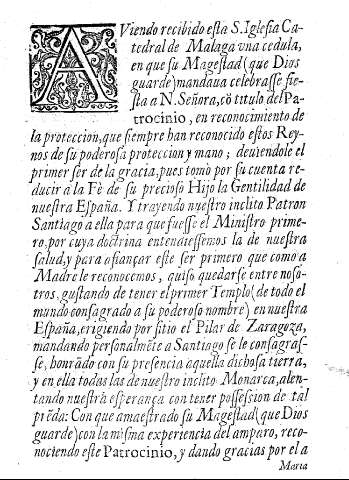 AViendo recibido esta S. Iglesia Ca-
tedral de Malaga vna cedula,
en que su Magestad (que Dios
guarde) mandaua celebrasse fie-
sta a N. Señora, cõ titulo del Pa-
trocinio, en reconocimiento de
la proteccion, que siempre han reconocido estos Rey-
nos de su poderosa proteccion y mano; deuiendole el
primer ser de la gracia, pues tomò por su cuenta re-
ducir à la Fè de su precioso Hijo la Gentilidad de
nuestra España. Y trayendo nuestro inclito Patron
Santiago a ella para que fuesse el Ministro prime-
ro, por cuya doctrina entendiessemos la de nuestra
salud, y para afiançar este ser primero que como a
Madre le reconocemos, quiso quedarse entre noso-
tros, gustando de tener el primer Templo (de todo el
mundo consagrado a su poderoso nombre) en nuestra
España, erigiendo por sitio el Pilar de Zaragoza,
mandando personalmẽte a Santiago se le consagras-
se, honrãdo con su presencia aquella dichosa tierra,
y en ella todas las de nuestro inclito Monarca, alen-
tando nuestra esperança con tener possession de tal
prẽda: Con que amaestrado su Magestad (que Dios
guarde) con la misma experiencia del amparo, reco-
nociendo este Patrocinio, y dando gracias por el a
Maria